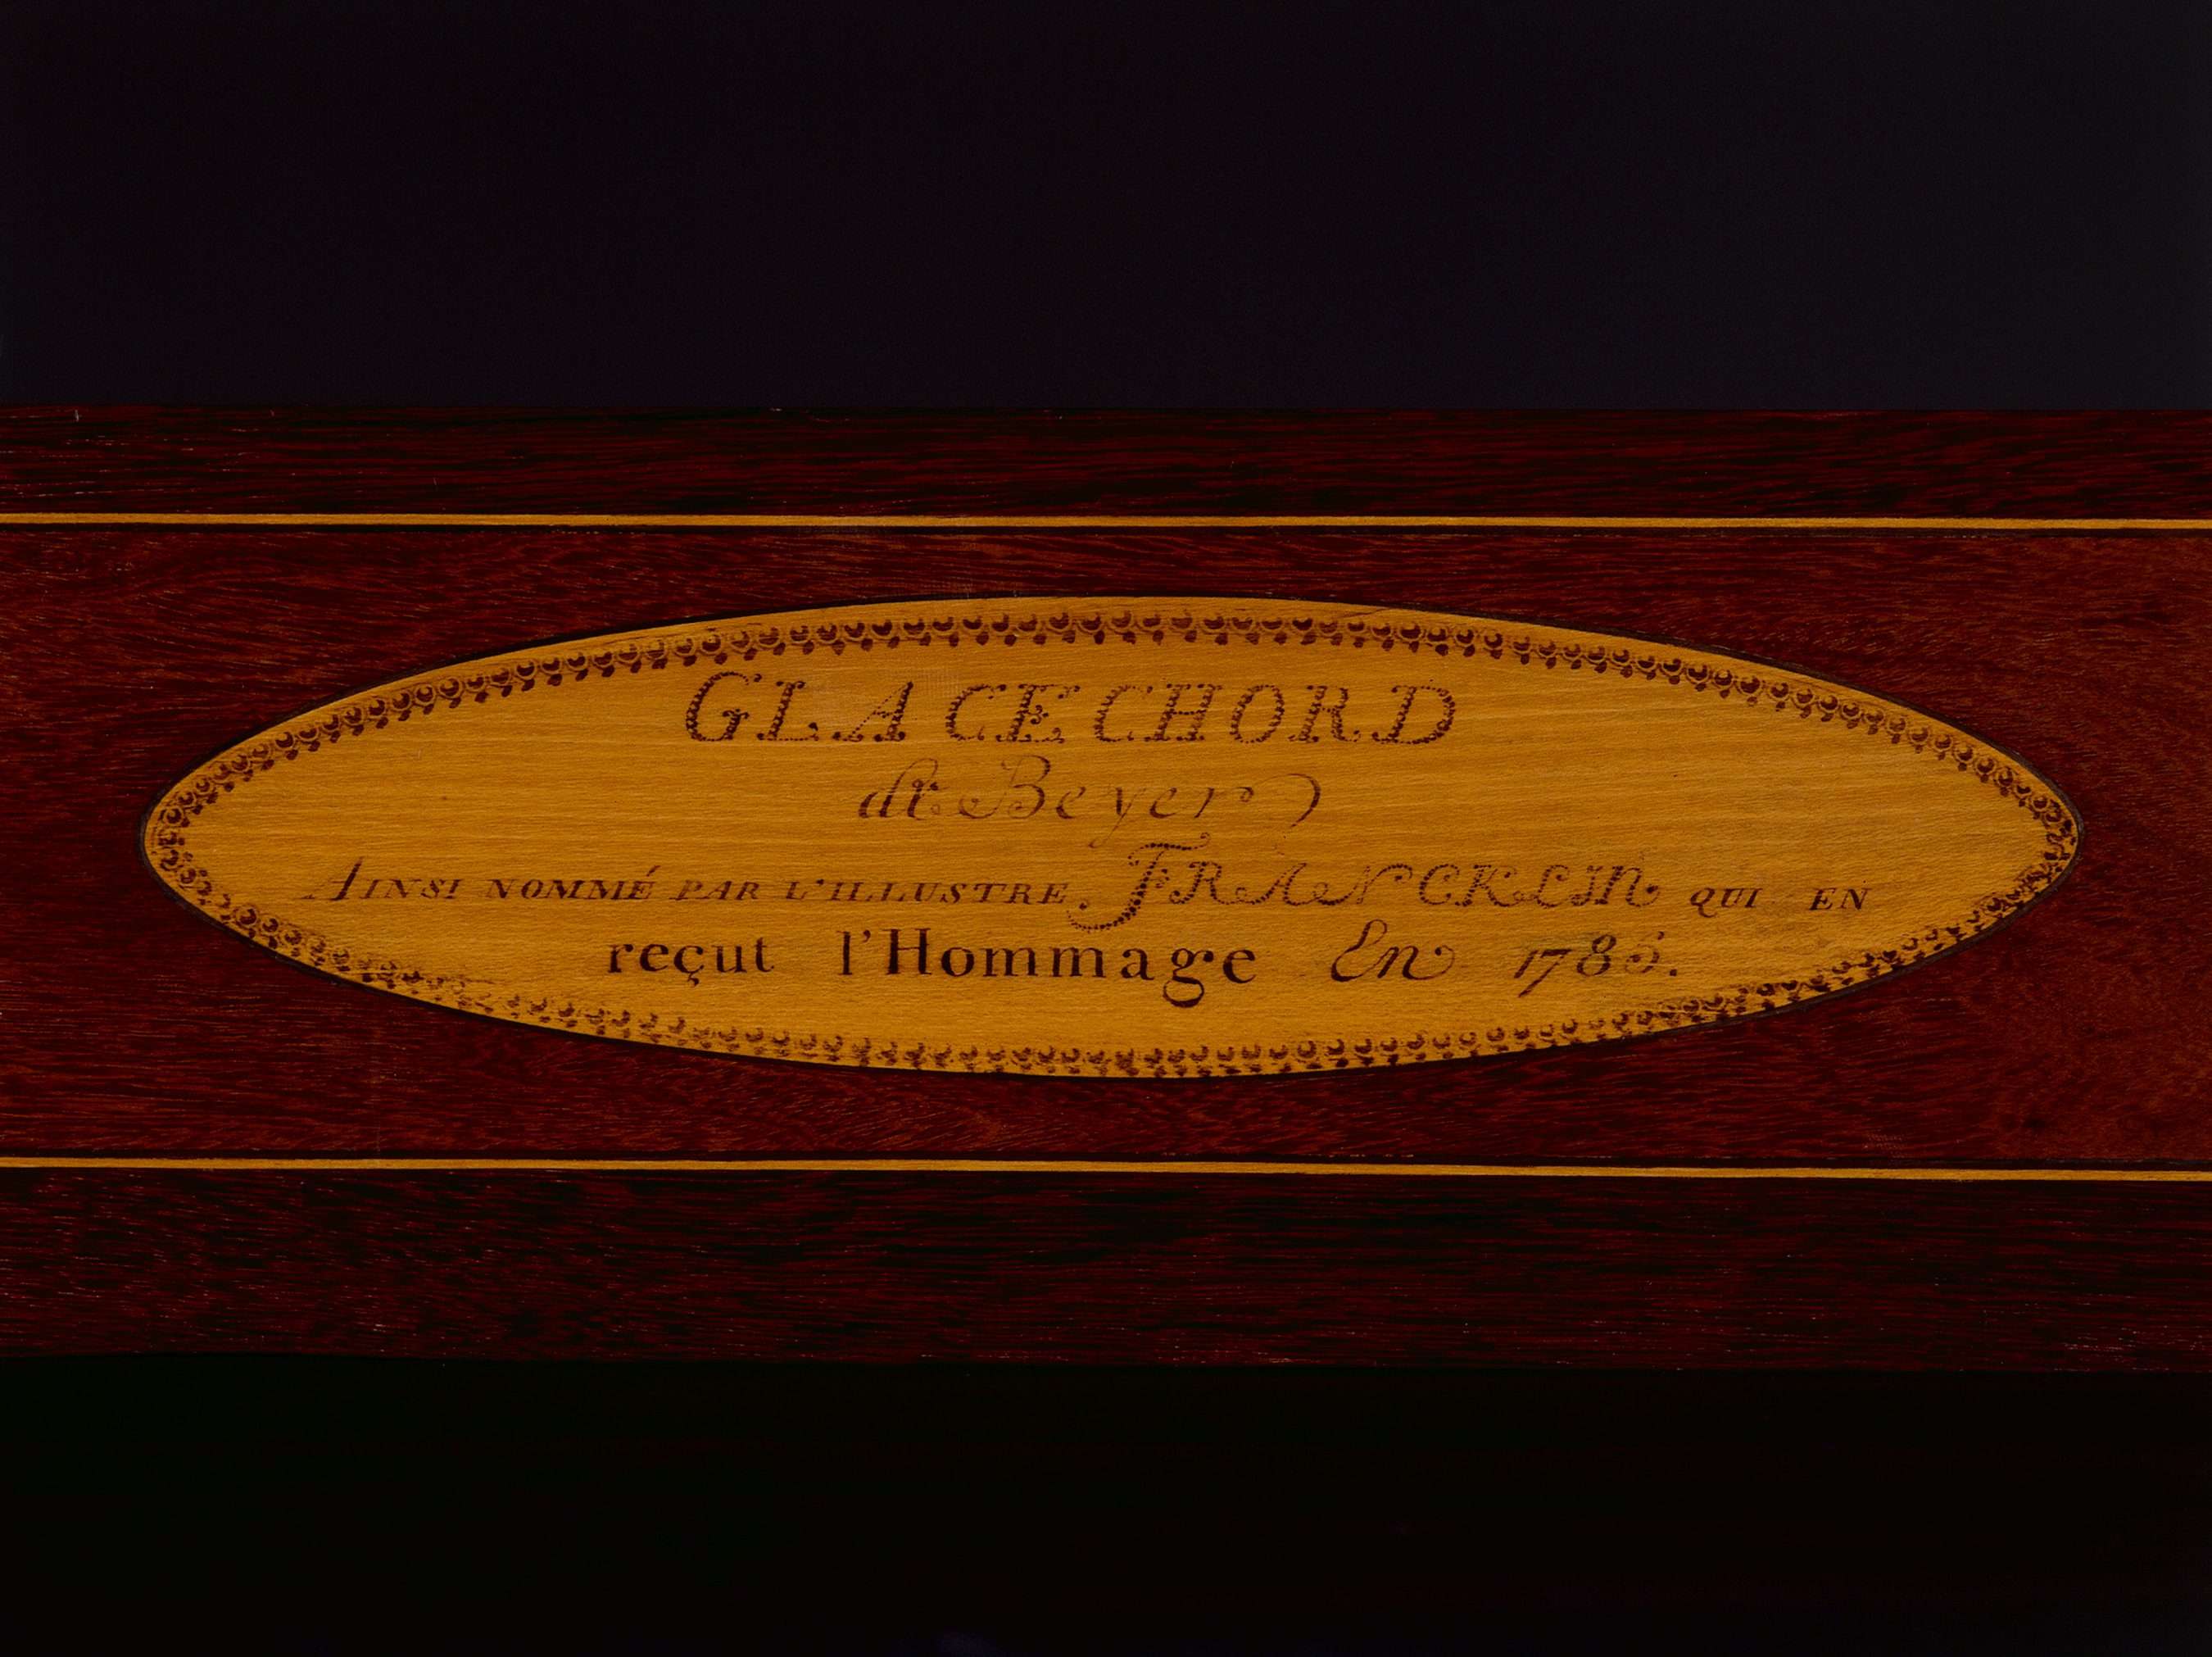 GLACECHORD
de Beyer
AINSI NOMMÉ PAR L'ILLUSTRE FRANCKLIN QUI EN
reçut l'Hommage En 1785.